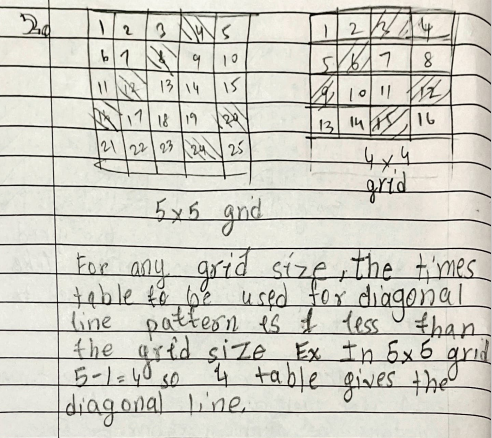 2.
1 2 3 4 5
6 7 8 9 10
11 12 13 14 15
16 17 18 19 20
21 22 23 24 25
5x5 grid
1 2 3 4
5 6 7 8
9 10 11 12
13 14 15 16
4x4
grid
For any grid size, the times
table to be used for diagonal
line pattern is 1 less than
the grid size Ex In 5x5 grid
5-1=4 so 4 table gives the
diagonal line.